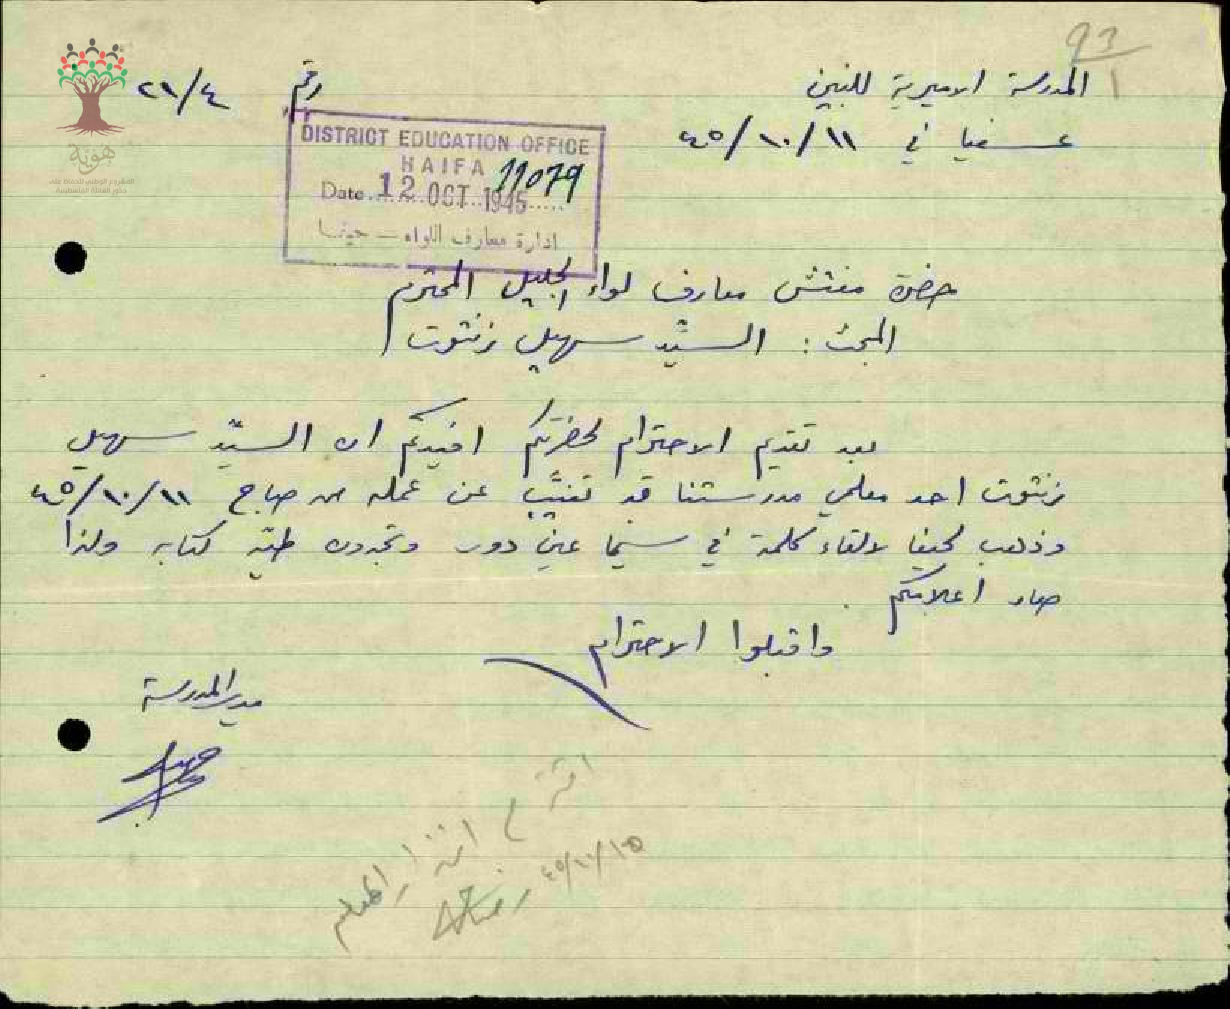 93
1
المدرسة الاميرية للبنين
رقم ٢١/٤
عسفيا في ٤٥/١٠/١١
DISTRICT EDUCATION OFFICE
HAIFA
11079
Date 12 OCT 1945
ادارة معارف اللواء – حيفا
هوية
حضرة مفتش معارف لواء الجليل المحترم
المبحث : السيّد سهيل زنتوت
بعد تقديم الاحترام لحضرتكم افيدكم ان السيّد سهيل
زنتوت احد معلمي مدرستنا قد تغيّب عن عمله من صباح ٤٥/١٠/١١
وذهب لحيفا لالقاء كلمة في سينما عين دور وتجدون طيّه كتابه ولذا
صار اعلامكم .
واقبلوا الاحترام
مدير المدرسة
اقترح انذار المعلم
٤٥/١٠/١٥